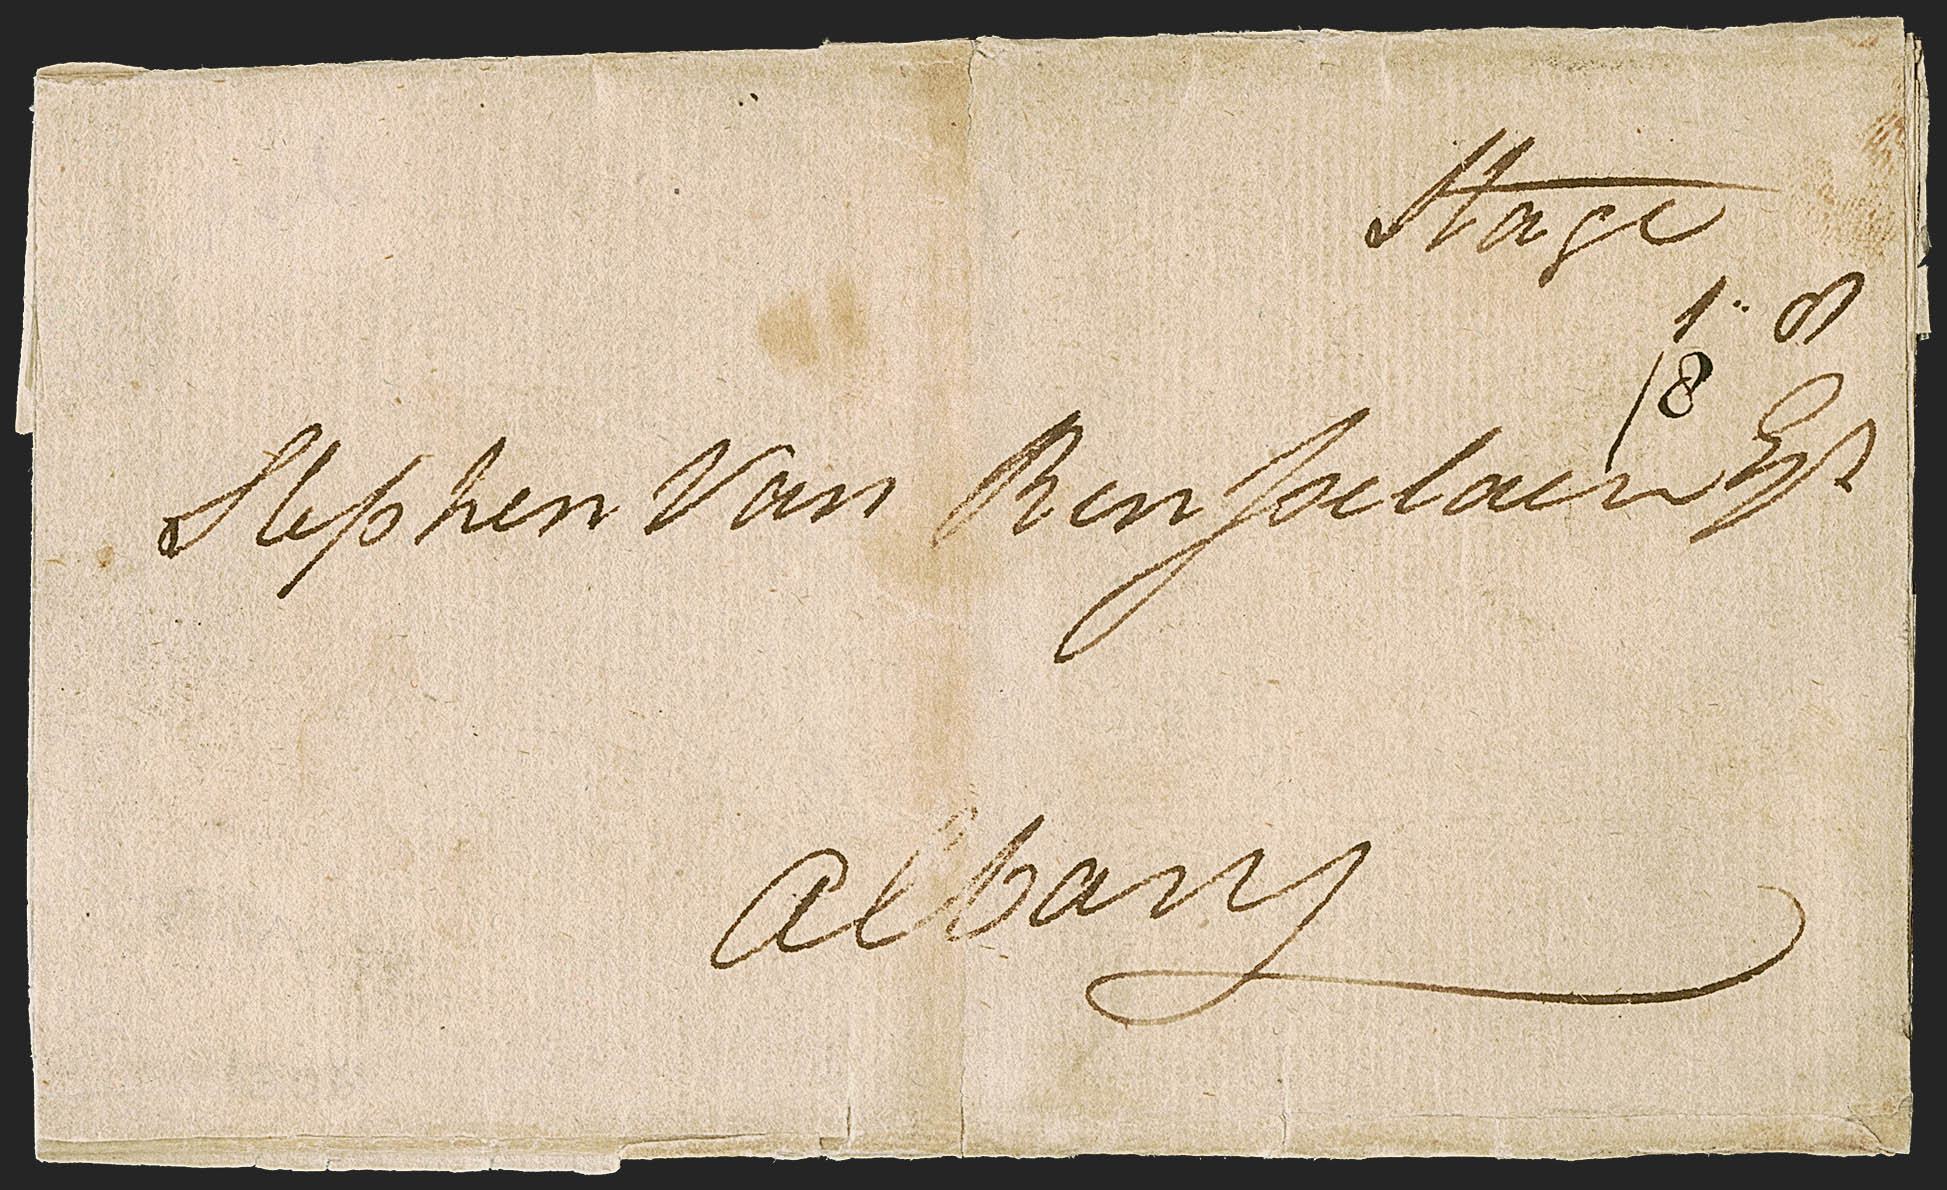 Stage
1.. 8
/8
Stephen Van Rensselaer Esqr
Albany